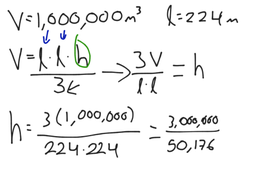 V=1,000,000m³ l=224m
V=l·l·h/3 → 3V/l·l = h
h= 3(1,000,000)/224·224 = 3,000,000/50,176